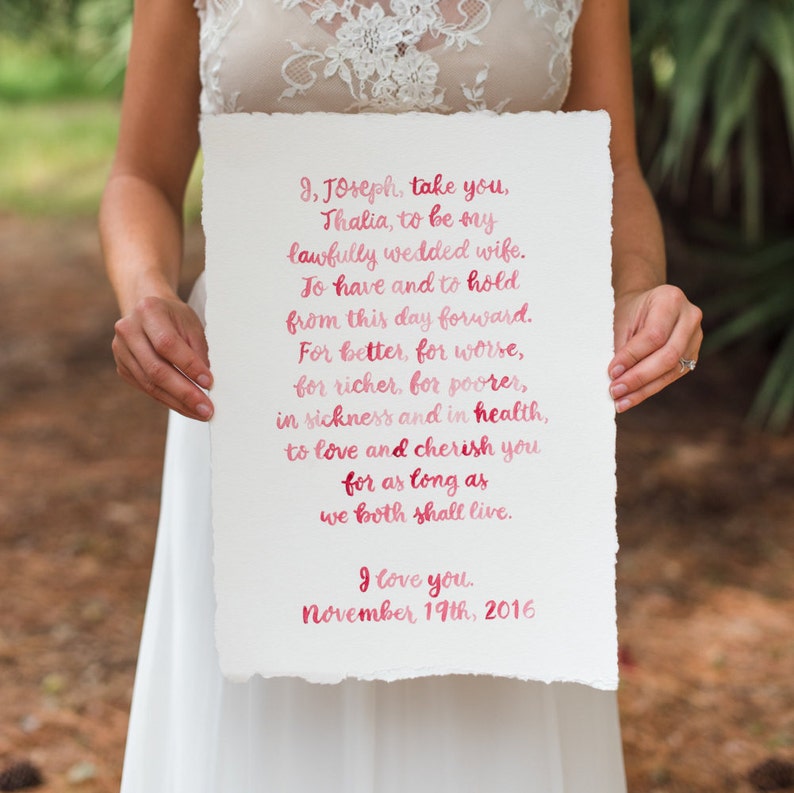 I, Joseph, take you,
Thalia, to be my
lawfully wedded wife.
To have and to hold
from this day forward.
For better, for worse,
for richer, for poorer,
in sickness and in health,
to love and cherish you
for as long as
we both shall live.
I love you.
November 19th, 2016